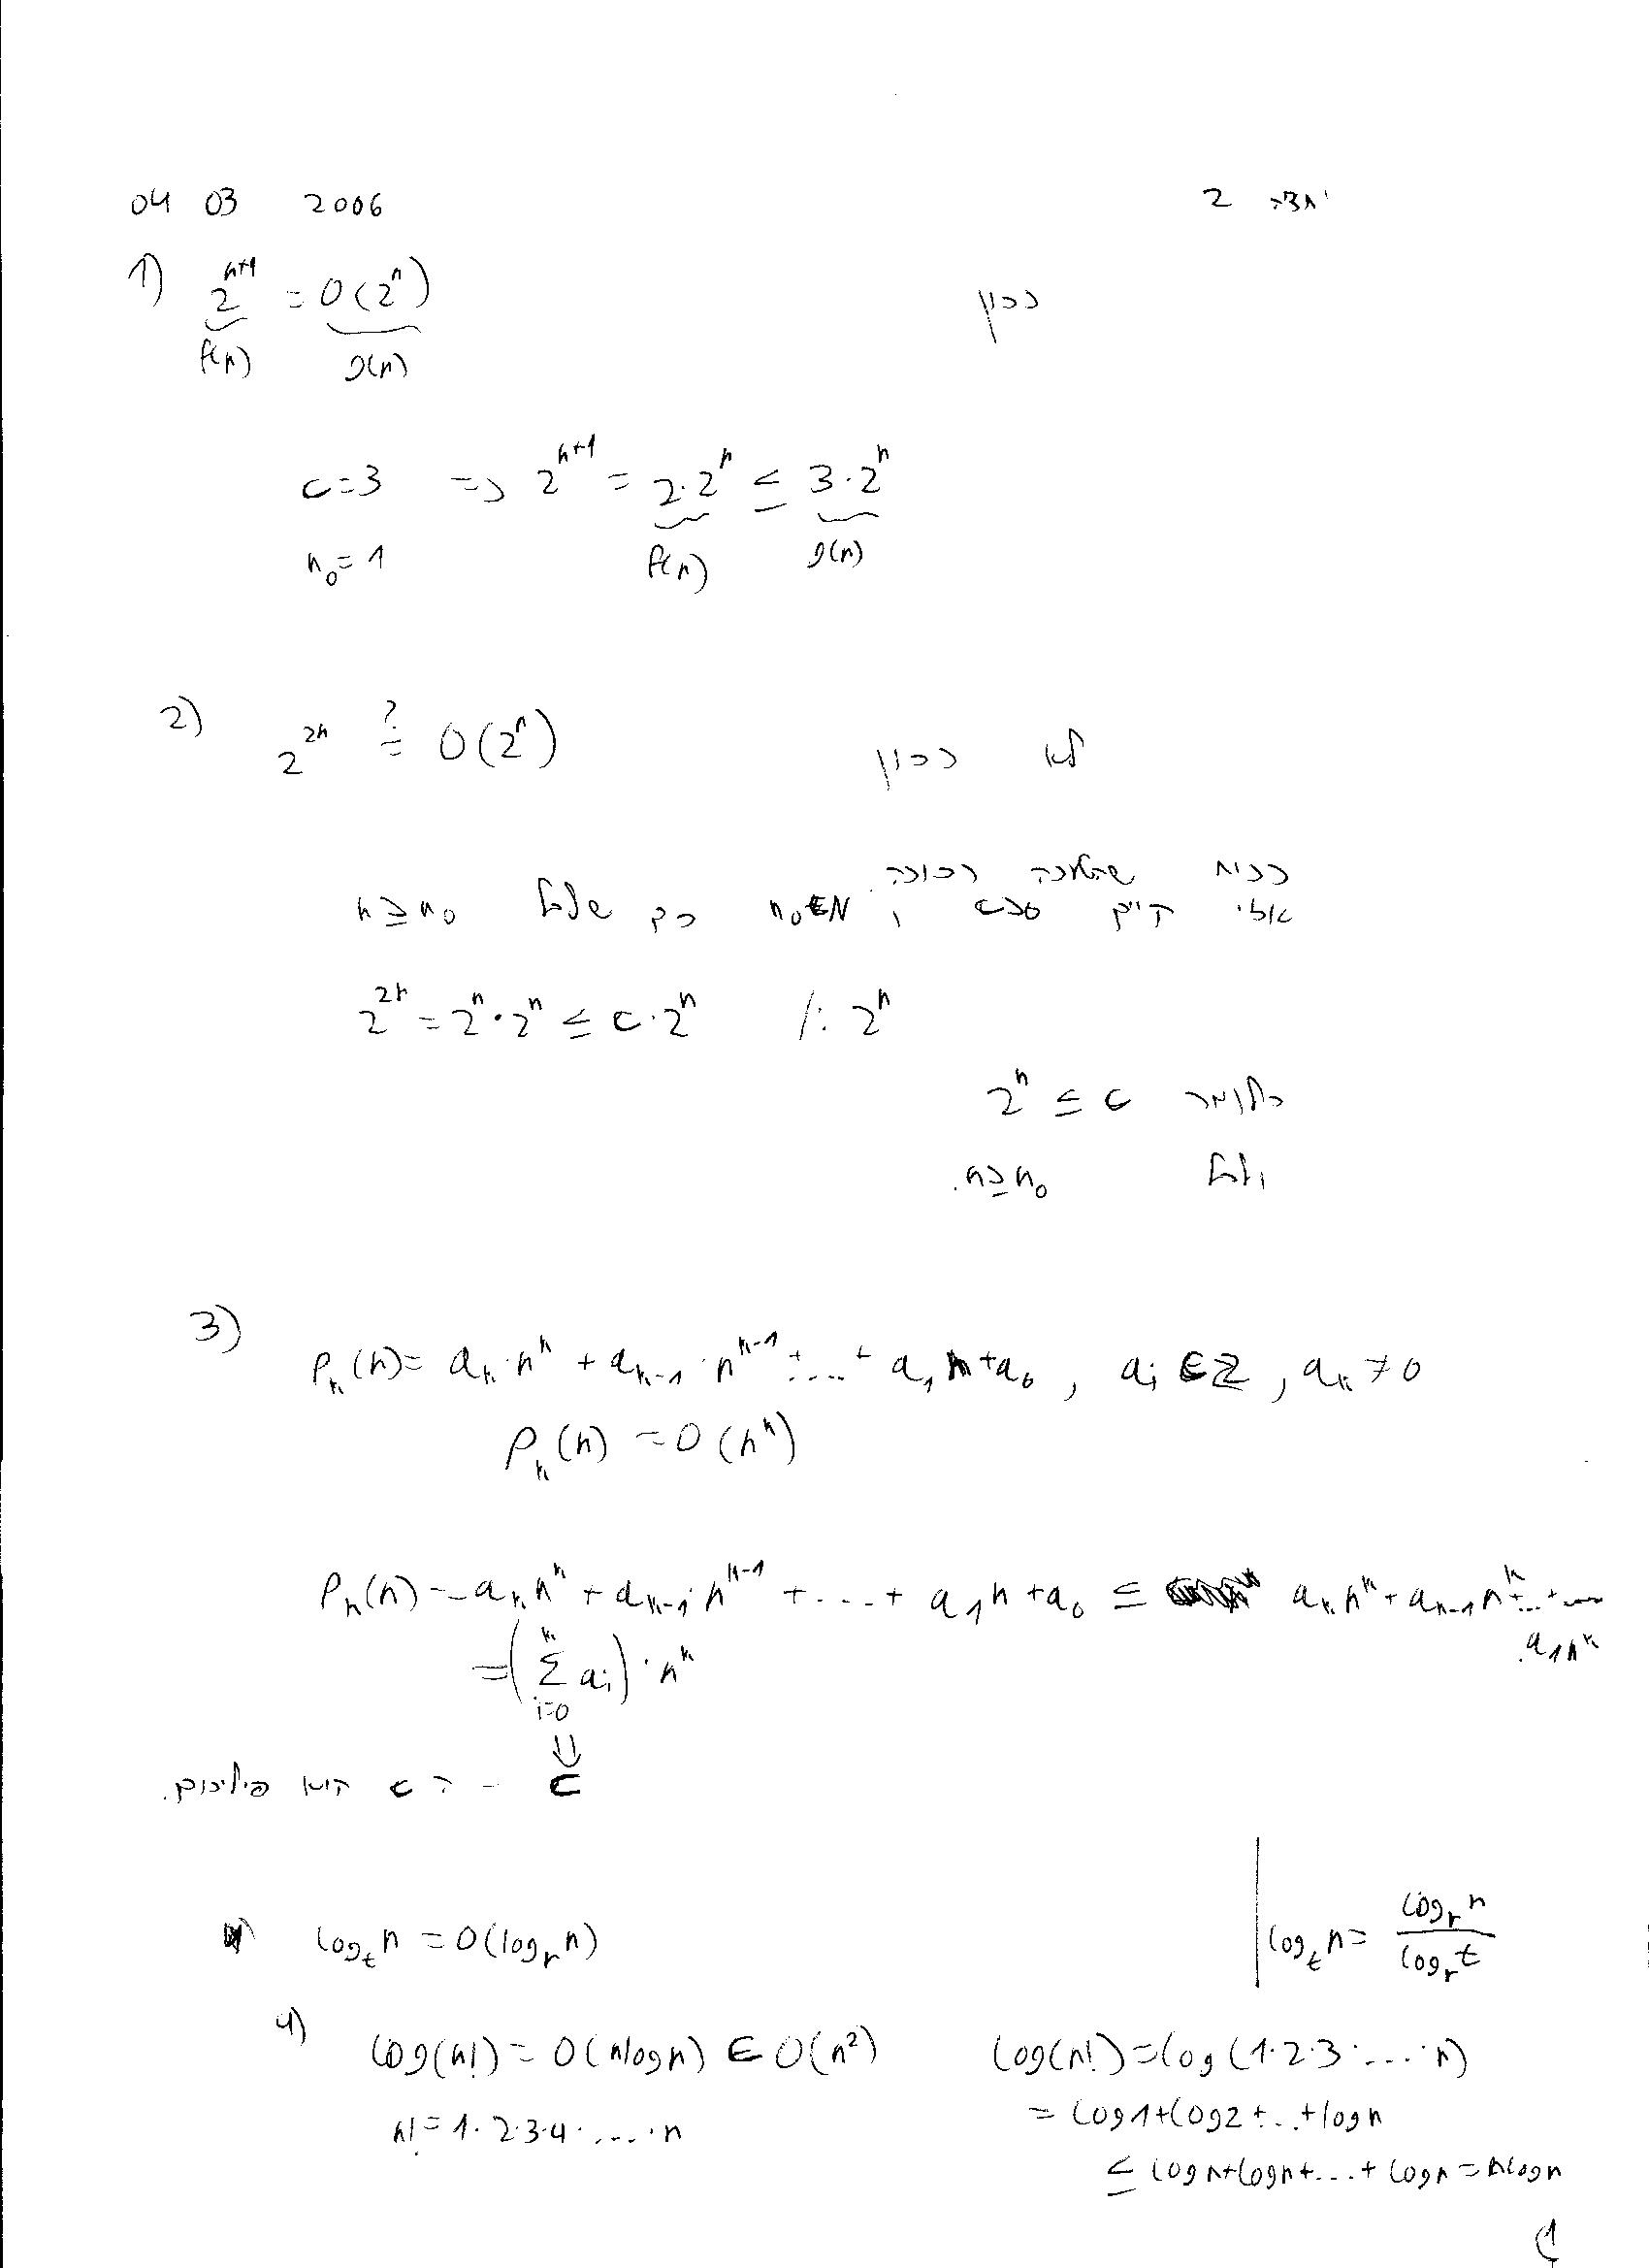 04 03 2006 יחידה 2
1) 2^{n+1} = O(2^n) נכון
f(n) g(n)
c=3 => 2^{n+1} = 2·2^n ≤ 3·2^n
n_0=1 f(n) g(n)
2) 2^{2n} ?= O(2^n) לא נכון
נניח שהטענה נכונה,
אזי קיים c>0 ו n_0∈N כך שלכל n≥n_0
2^{2n} = 2^n·2^n ≤ c·2^n /: 2^n
כלומר 2^n ≤ c
ולכל n≥n_0.
3) P_k(n) = a_k·n^k + a_{k-1}·n^{k-1} + .... + a_1 n + a_0, a_i ∈ Z, a_k ≠ 0
P_k(n) = O(n^k)
P_k(n) = a_k n^k + a_{k-1}·n^{k-1} + ... + a_1 n + a_0 ≤ a_k n^k + a_{k-1} n^k + ... + ...
a_1 n^k
= (∑_{i=0}^{k} a_i)·n^k
⇓
c - ה c הוא פולינום.
log_t n = O(log_r n) | log_t n = log_r n / log_r t
4) log(n!) = O(nlogn) ∈ O(n^2) log(n!) = log(1·2·3·....·n)
n! = 1·2·3·4·....·n = log1+log2+...+logn
≤ logn+logn+...+logn = nlogn